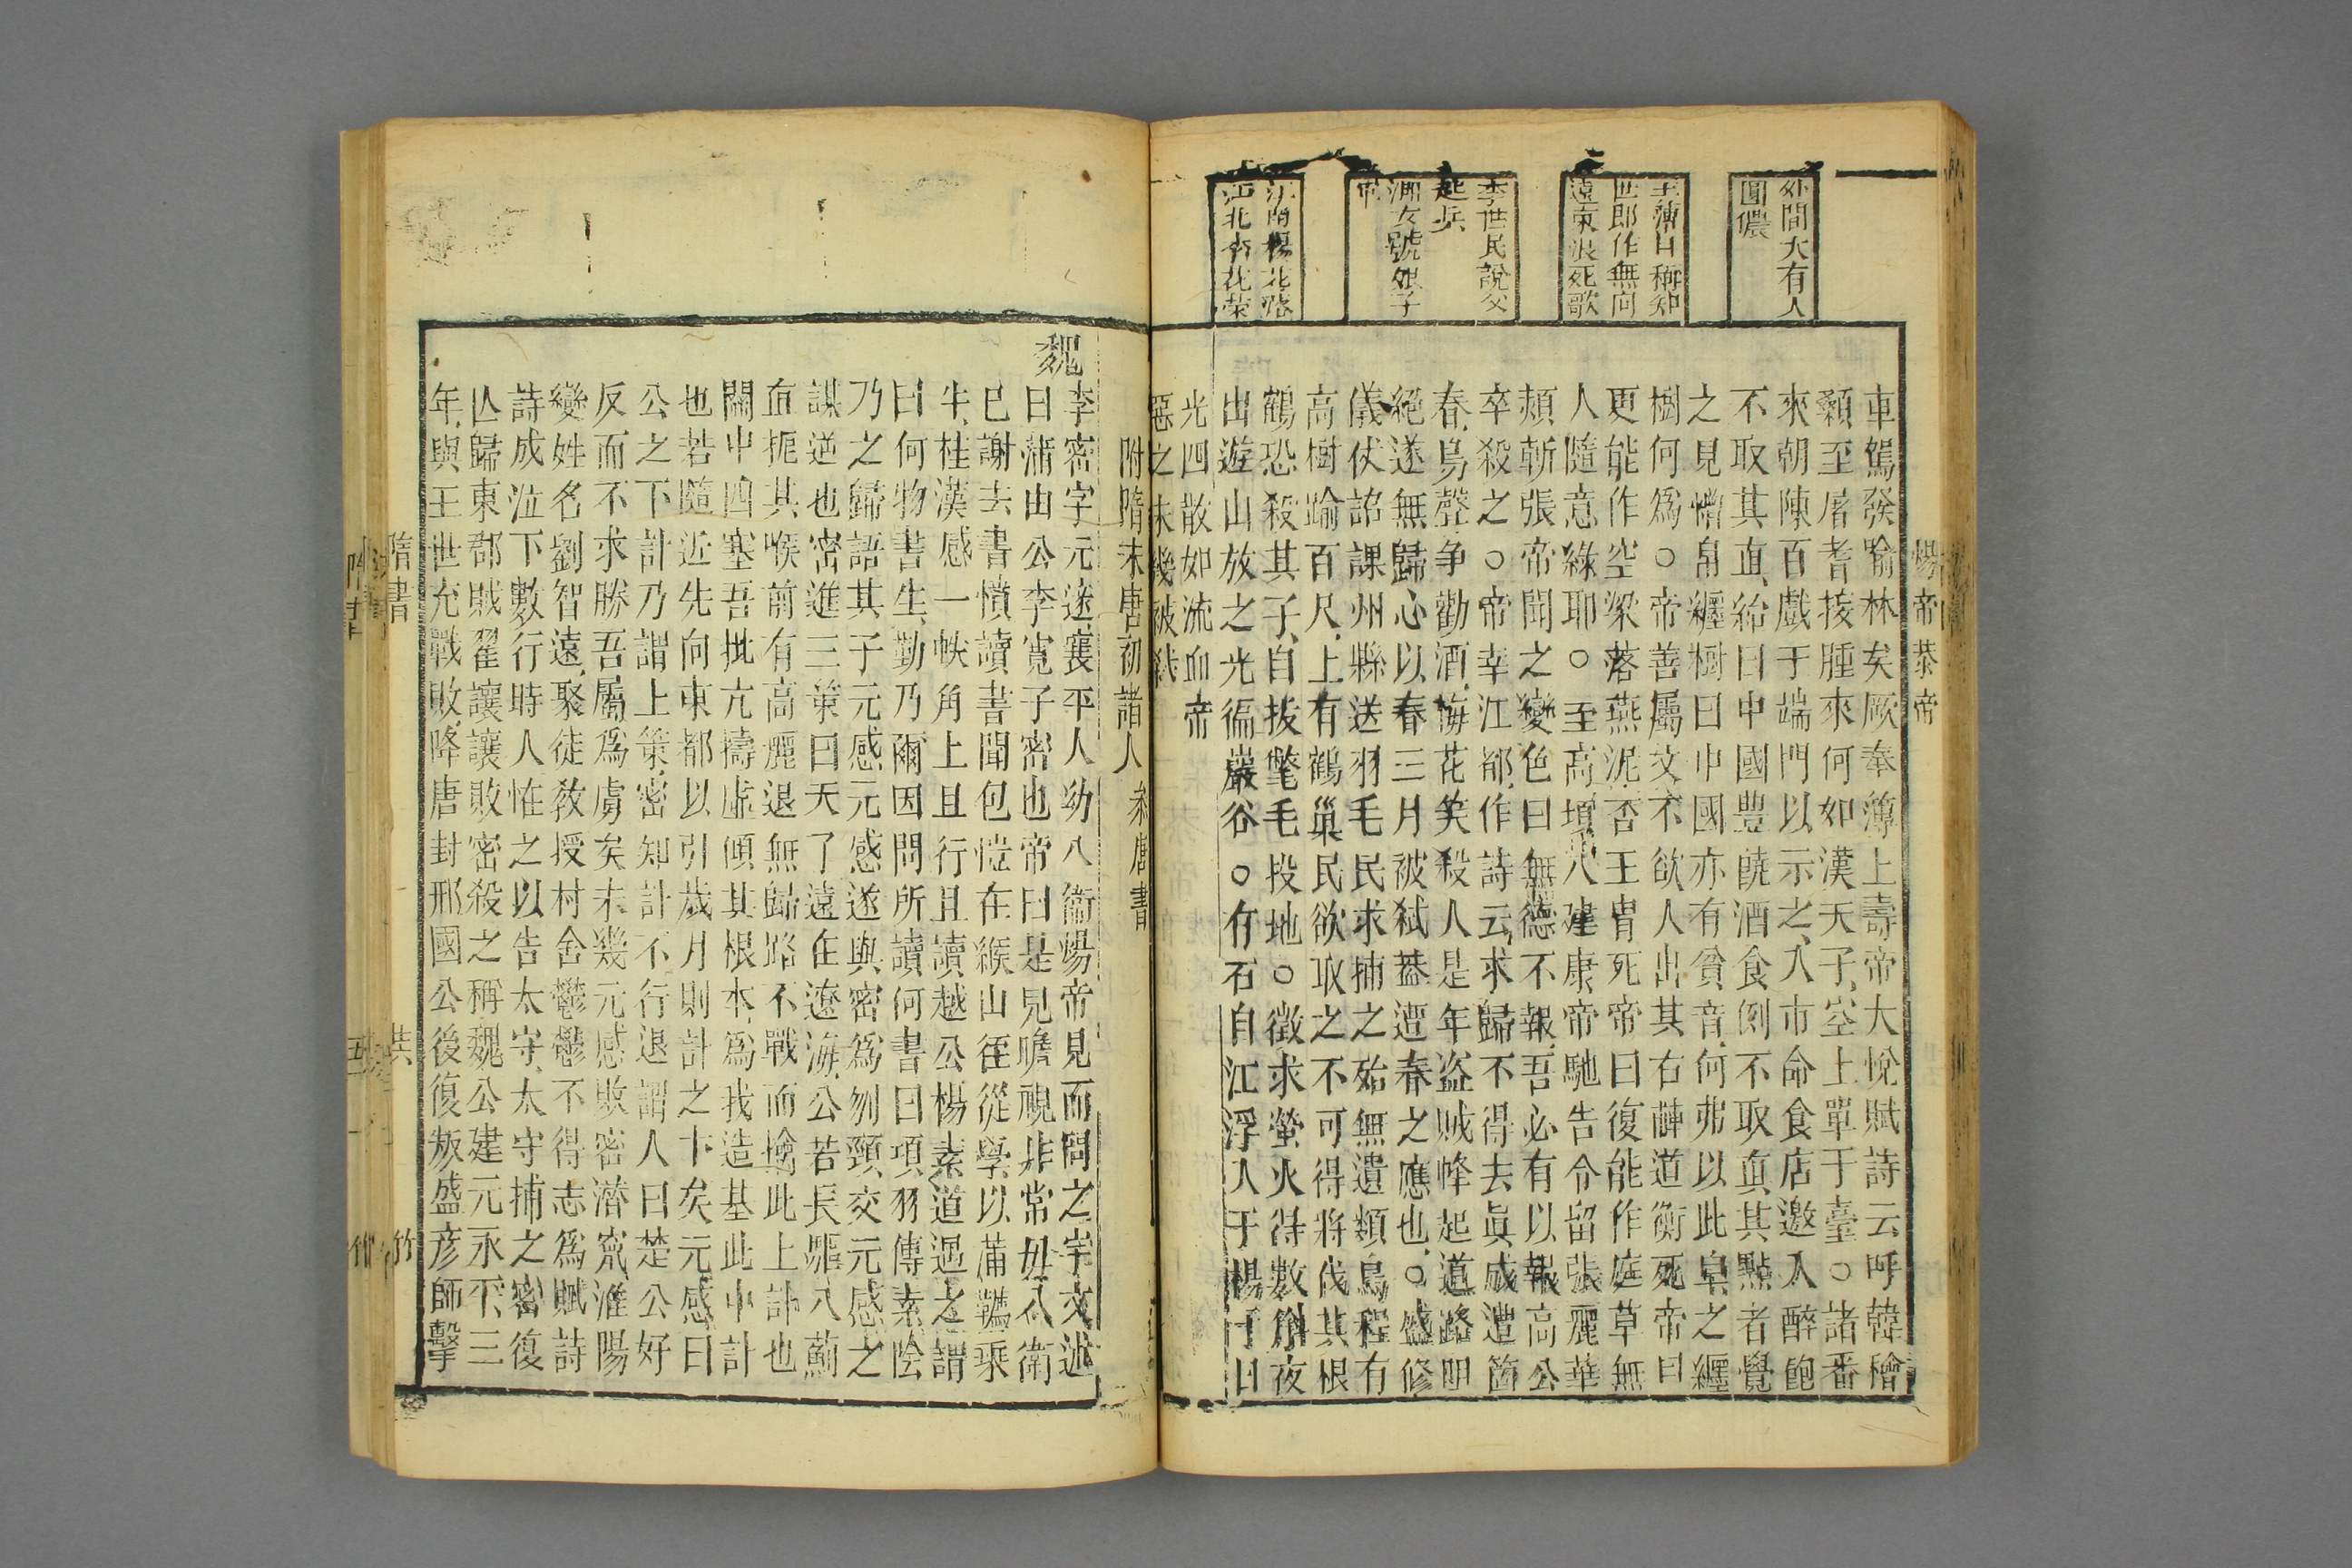 外間大有人
圓儂
王薄自稱知
世郎作無向
遼東浪死歌
李世民說父
起兵
淵女號娘子
軍
江北杏花榮
煬帝 恭帝
車駕發喻林矣厥奉薄上壽帝大悅賦詩云呼韓稽
顙至屠耆接踵來何如漢天子空上單于臺○諸番
來朝陳百戲于端門以示之入市命食店邀入醉飽
不取其直紿曰中國豐饒酒食例不取直其點者覺
之見繒帛纏樹曰中國亦有貧者何弗以此皐之纏
樹何爲○帝善屬文不欲人出其右薛道衡死帝曰
更能作空梁落燕泥否王胄死帝曰復能作庭草無
人隨意綠耶○至高熲入建康帝馳告令留張麗華
熲斬張帝聞之變色曰無德不報吾必有以報高公
卒殺之○帝幸江都作詩云求歸不得去眞成遭箇
春鳥聲争勸酒梅花笑殺人是年盜賊蜂起道路明
絕遂無歸心以春三月被弑葢遭春之應也○盛修
儀仗詔課州縣送羽毛民求捕之殆無遺類烏程有
高樹踰百尺上有鶴巢民欲取之不可得將伐其根
鶴恐殺其子自拔氅毛投地○徵求螢火得數斛夜
出遊山放之光徧巖谷○有石自江浮入于楊子日
光四散如流血帝
惡之未幾被弑
附隋末唐初諸人 叅唐書
魏
李密字元邃襄平人幼入衛煬帝見而問之宇文述
曰蒲山公李寬子密也帝曰是見瞻視非常毋入衛
巳謝去書憤讀書聞包愷在緱山徃從學以蒲韉乘
牛桂漢感一帙角上且行且讀越公楊素道遇之謂
曰何物書生勤乃爾因問所讀何書曰項羽傳素陰
乃之歸語其子元感元感遂與密爲刎頸交元感之
謀逆也密進三策曰天了遠在遼海公若長驅入薊
直扼其喉前有高麗退無歸路不戰而擒此上計也
關中四塞吾批亢擣虛傾其根本爲我造基此中計
也若隨近先向東都以引歲月則計之下矣元感曰
公之下計乃謂上策密知計不行退謂人曰楚公好
反而不求勝吾屬爲虜矣未幾元感敗密潛窮淮陽
變姓名劉智遠聚徒敎授村舍鬱鬱不得志爲賦詩
詩成泣下數行時人怪之以告太守太守捕之密復
亾歸東郡賊翟讓讓敗密殺之稱魏公建元永平三
年與王世充戰敗降唐封邢國公後復叛盛彦師擊
隋書
共
竹